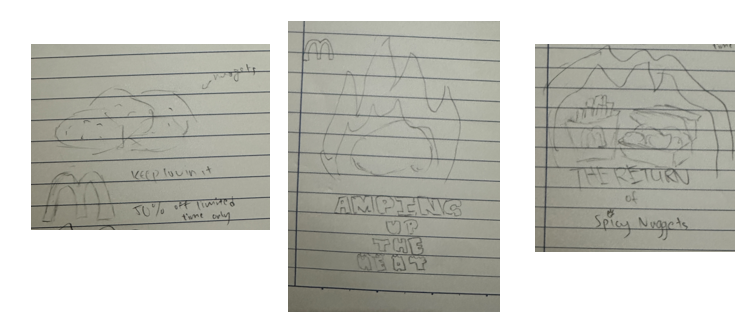 nuggets
Keep lovin it
50% off limited
time only
M
M
AMPING
UP
THE
HEAT
THE RETURN
of
Spicy Nuggets